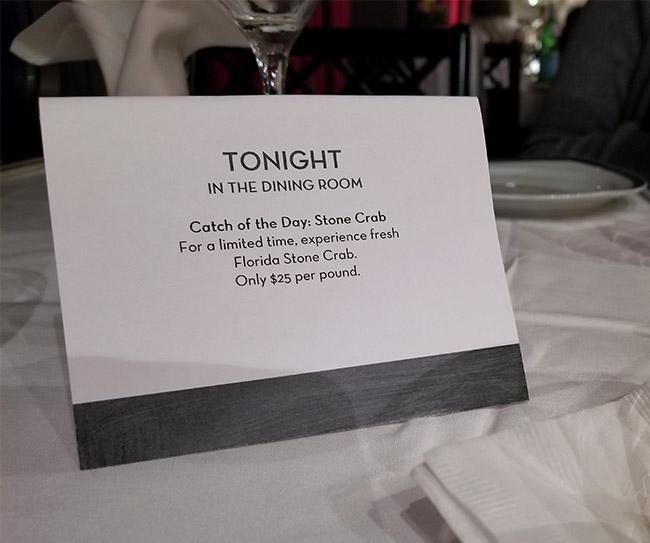 TONIGHT
IN THE DINING ROOM
Catch of the Day: Stone Crab
For a limited time, experience fresh
Florida Stone Crab.
Only $25 per pound.